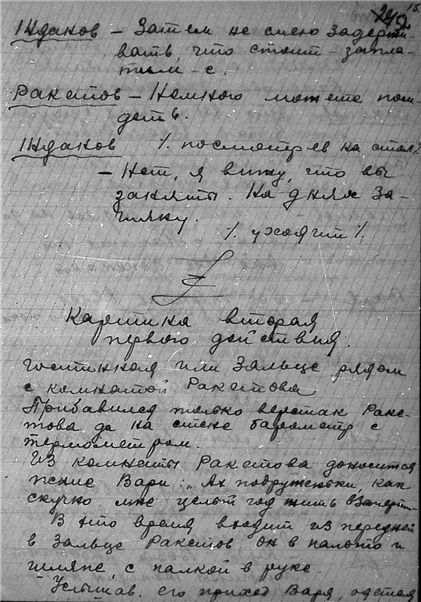 15.
242
Ждаков – Затем не смею задержи-
вать, что стоит – запла-
тим – с.
Ракетов – Немного можете поси-
деть.
Ждаков % посмотрев на стол %
– Нет, я вижу, что вы
заняты. На днях за-
гляну.
% уходит %
Картина вторая
первого действия.
Гостинная или Зальце рядом
с комнатой Ракетова
Прибавился только верстак Раке-
това да на стене барометр с
термометром.
Из комнаты Ракетова доносится
пение Вари: „Ах подруженьки, как
скучно мне целый год жить взаперти"
В это время входит из передней
в Зальце Ракетов, он в пальто и
шляпе, с палкой в руке.
Услышав его приход Варя, одетая